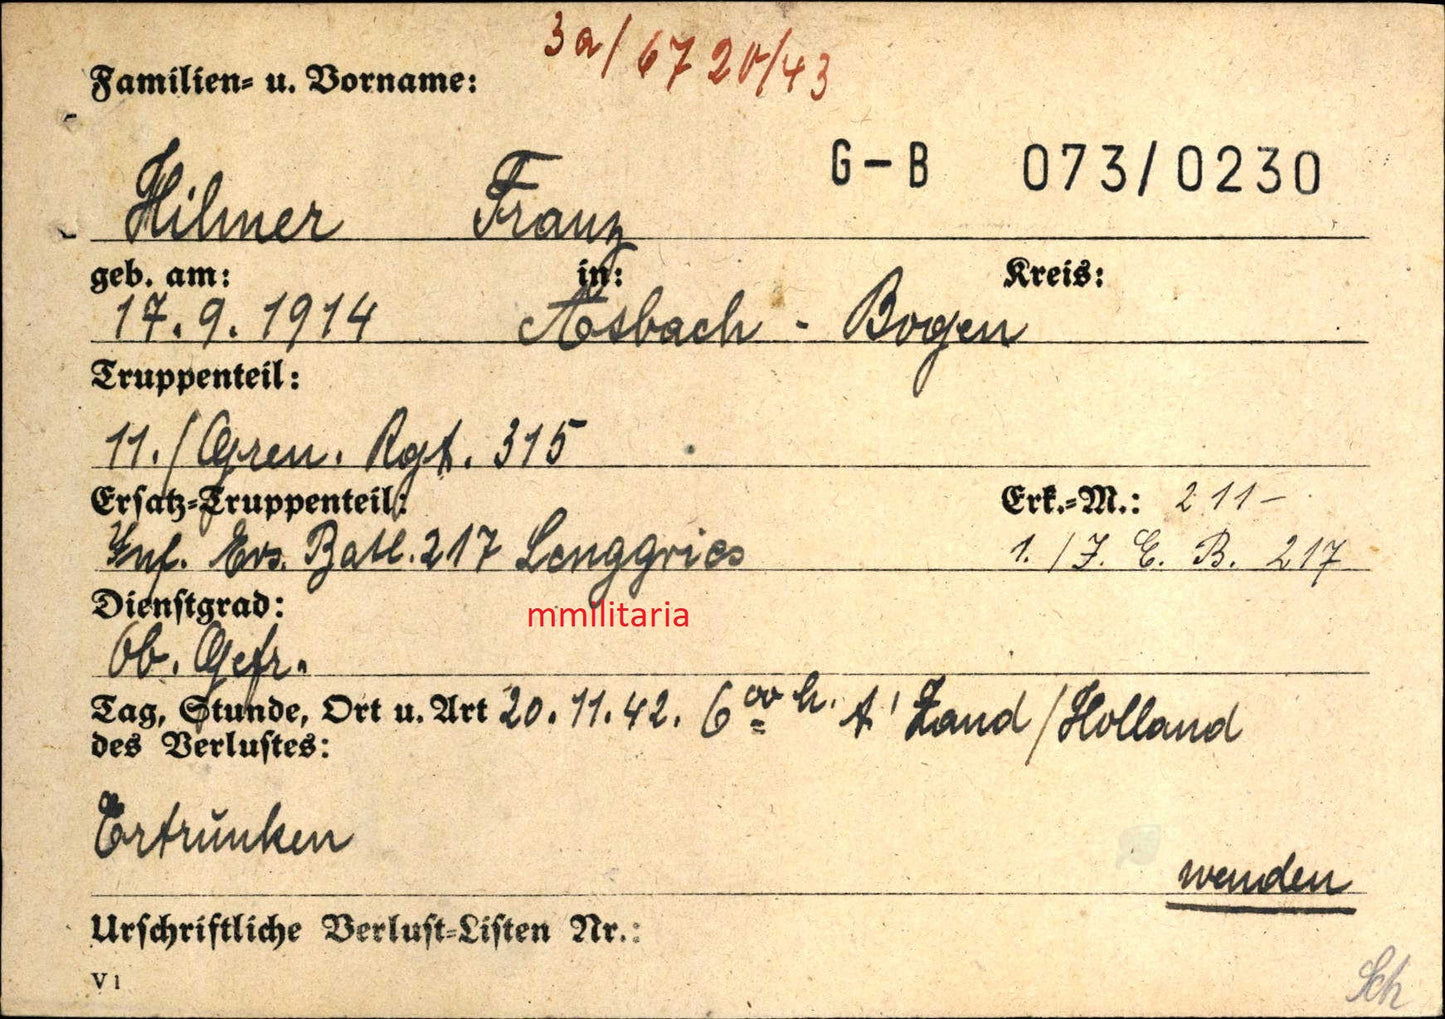 3a/6720/43
Familien- u. Vorname:
G-B 073/0230
Hilmer Franz
geb. am: in: Kreis:
17.9.1914 Asbach - Bogen
Truppenteil:
11./Gren. Rgt. 315
Ersatz-Truppenteil: Erk.-M.: 211-
Inf. Ers. Batl. 217 Lenggries 1./J. E. B. 217
Dienstgrad:
mmilitaria
Ob. Gefr.
Tag, Stunde, Ort u. Art 20.11.42. 6 00 h. t' Zand/Holland
des Verlustes:
Ertrunken
wenden
Urschriftliche Verlust-Listen Nr.:
V1
Sch